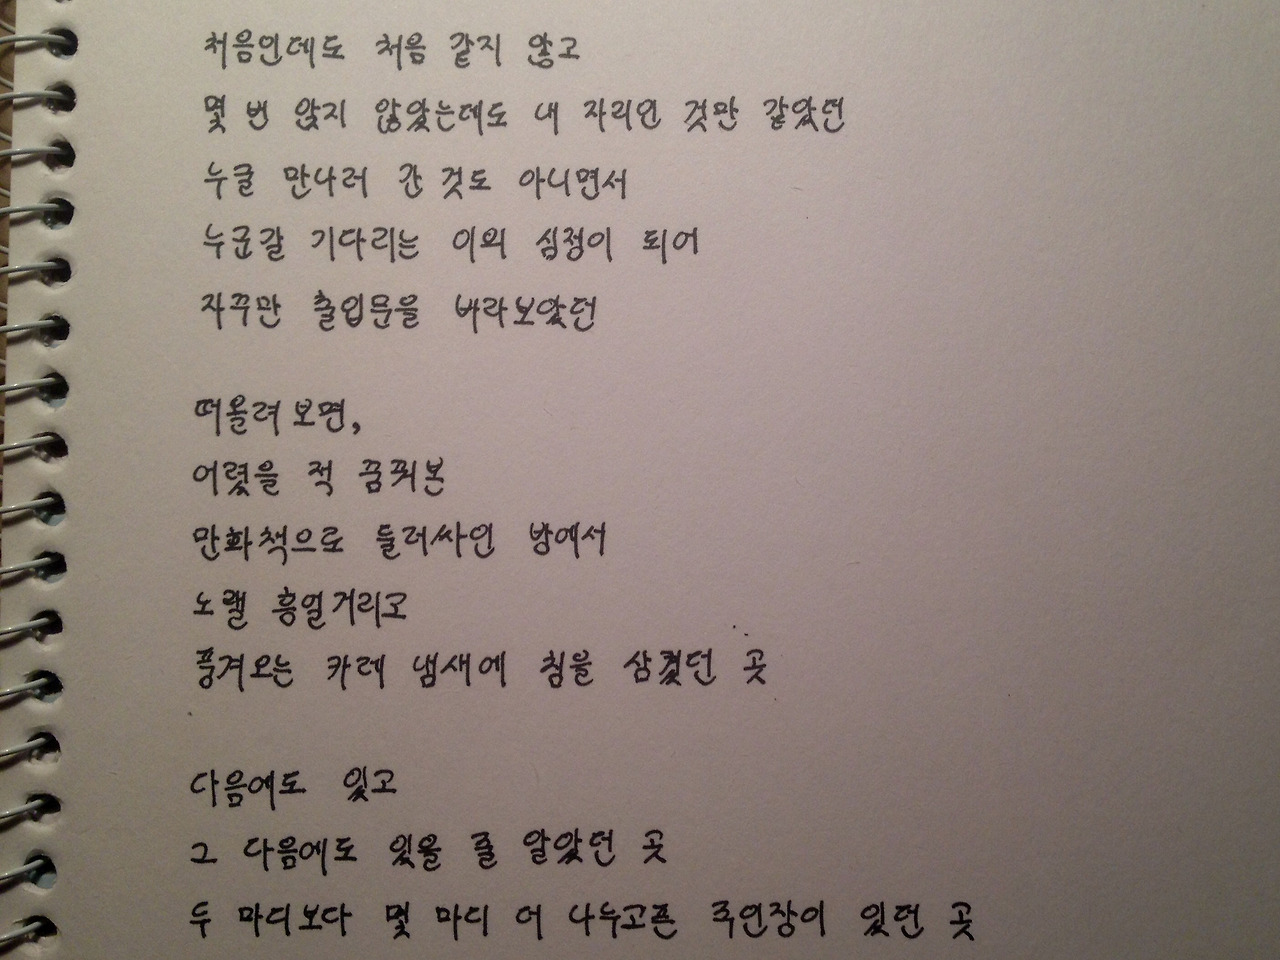 처음인데도 처음 같지 않고
몇 번 앉지 않았는데도 내 자리인 것만 같았던
누굴 만나러 간 것도 아니면서
누군갈 기다리는 이의 심정이 되어
자꾸만 출입문을 바라보았던
떠올려 보면,
어렸을 적 꿈꿔본
만화책으로 둘러싸인 방에서
노랠 흥얼거리고
풍겨오는 카레 냄새에 침을 삼켰던 곳
다음에도 있고
그 다음에도 있을 줄 알았던 곳
두 마디보다 몇 마디 더 나누고픈 주인장이 있던 곳